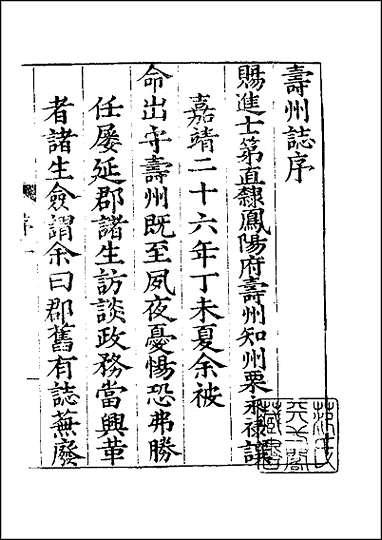 壽州誌序
賜進士第直隸鳳陽府壽州知州栗永禄譔
嘉靖二十六年丁未夏余被
命出守壽州既至夙夜憂惕恐弗勝
任屡延郡諸生訪談政務當興革
者諸生僉謂余曰郡舊有誌蕪廢
序 一
天一閣